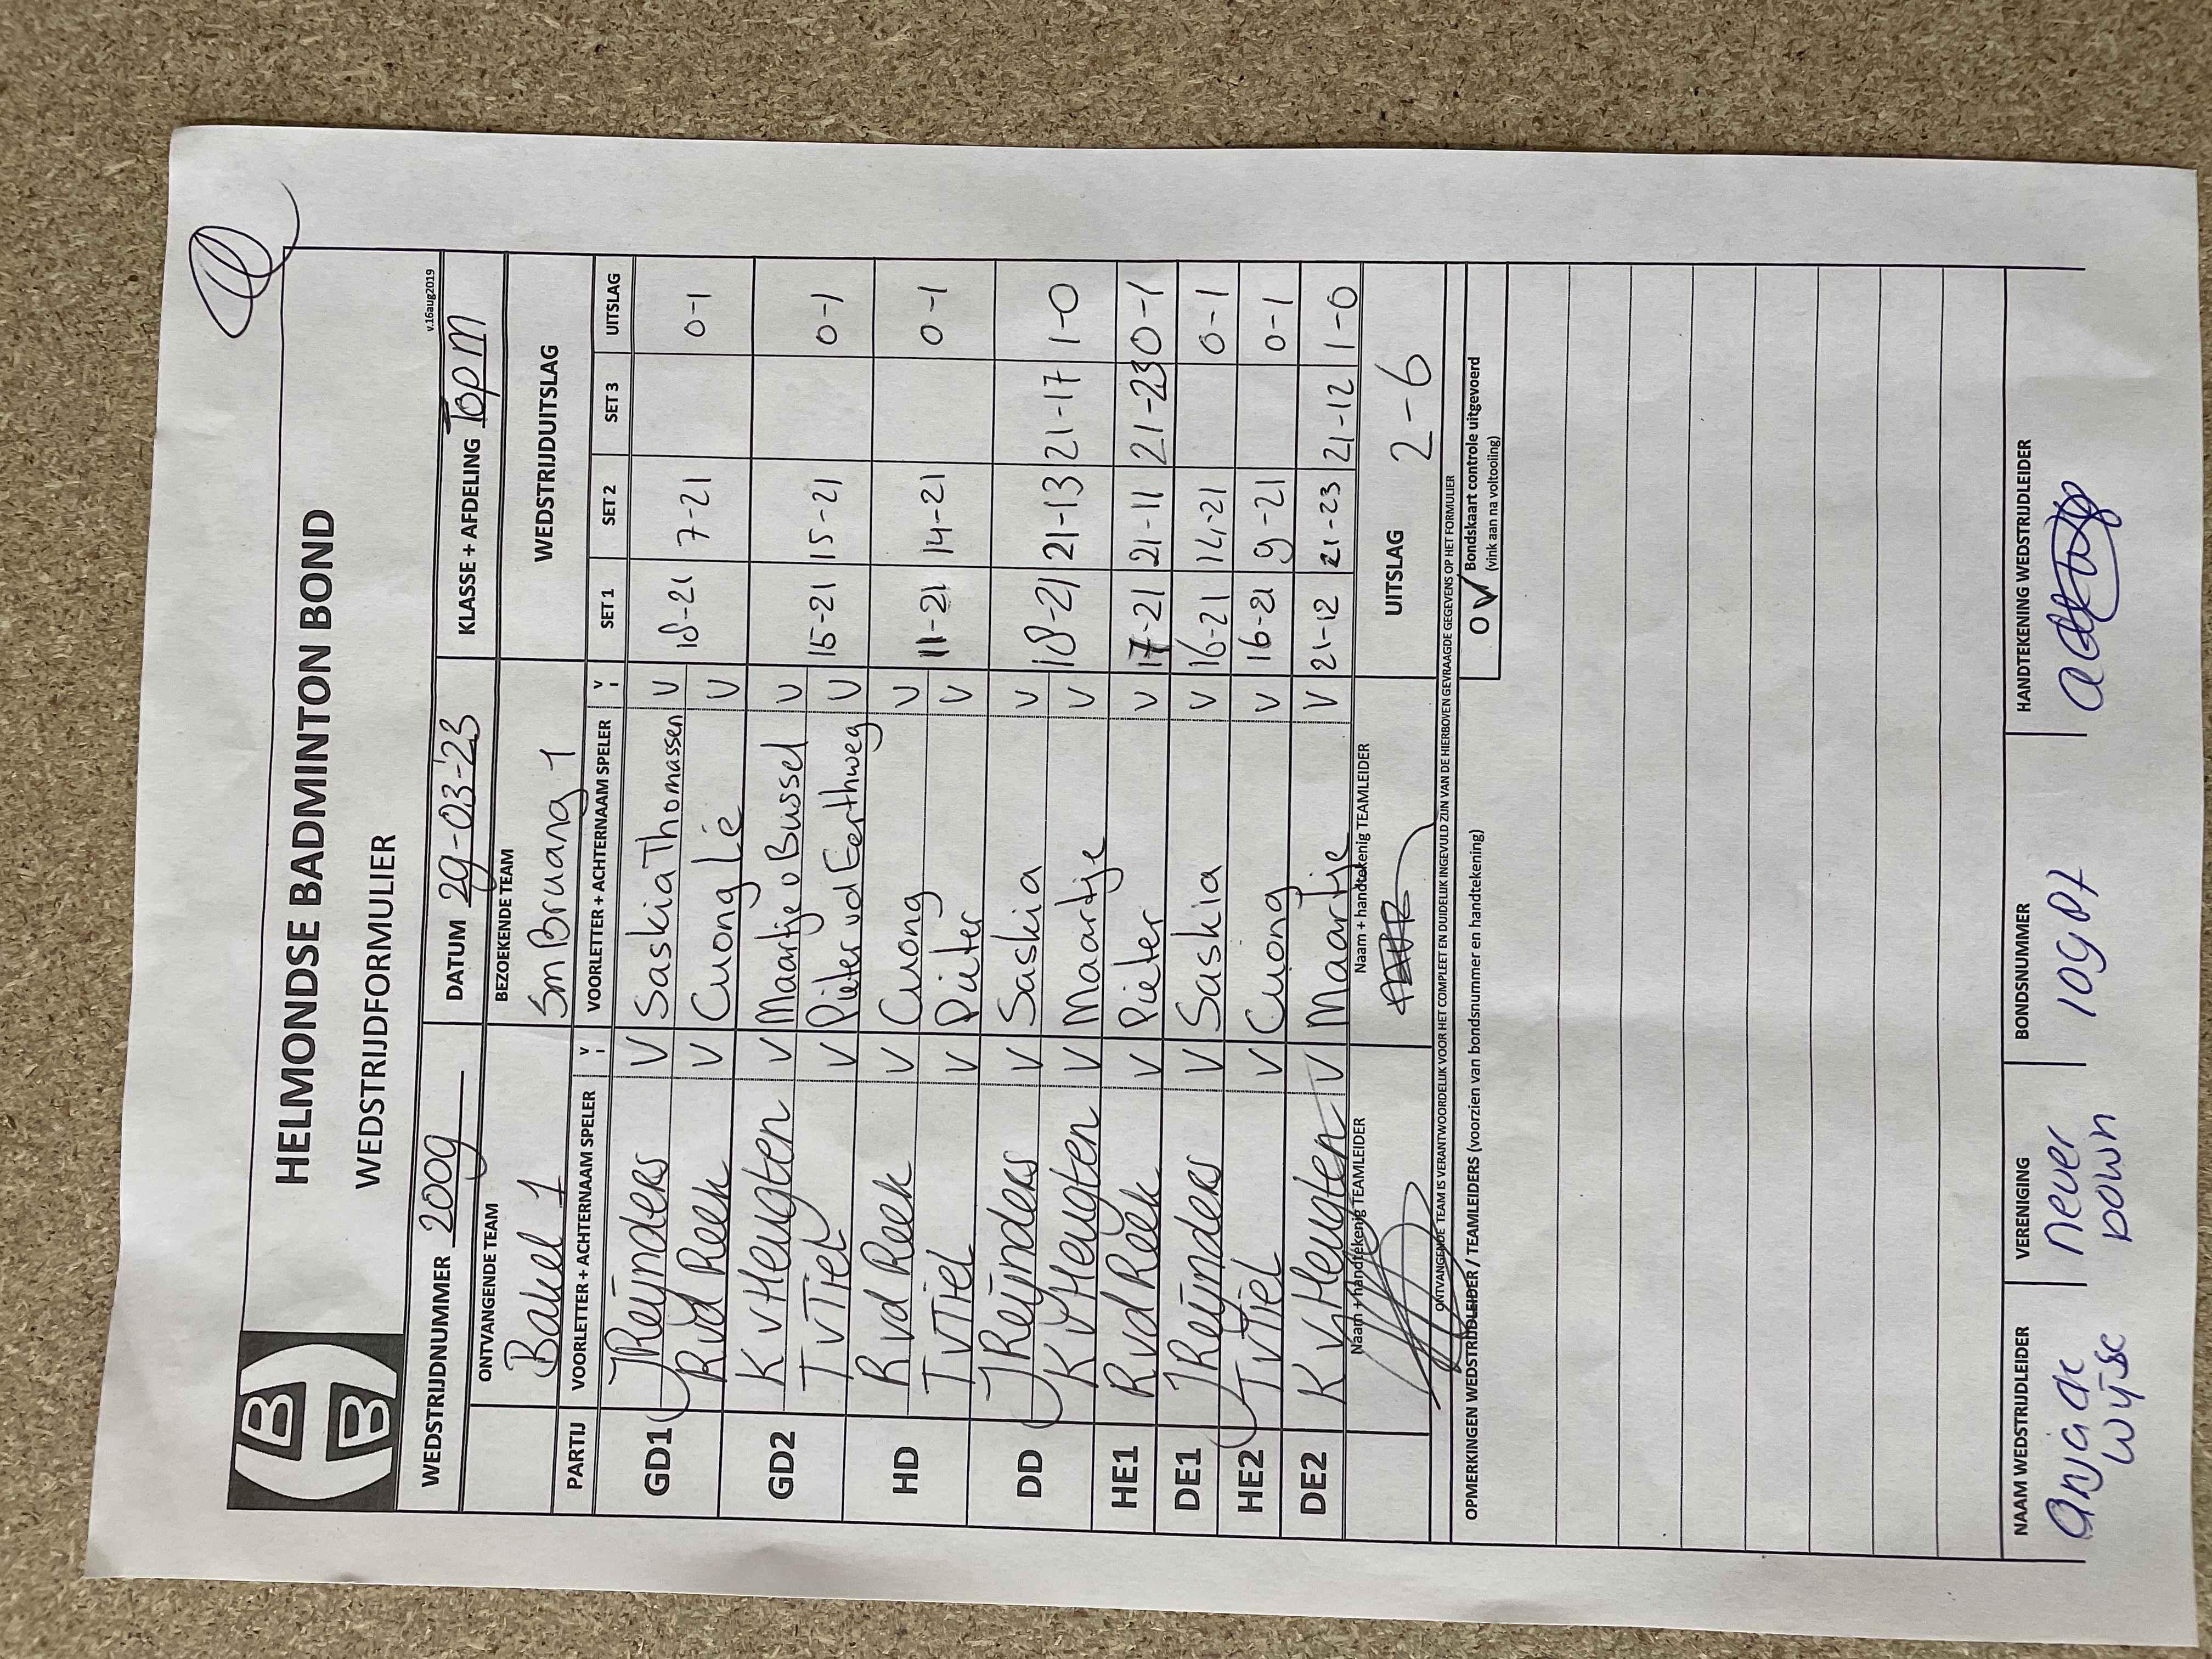 HELMONDSE BADMINTON BOND
WEDSTRIJDFORMULIER
v.16aug2019
WEDSTRIJDNUMMER 2009 DATUM 29-03-'23 KLASSE + AFDELING Top M
ONTVANGENDE TEAM BEZOEKENDE TEAM WEDSTRIJDUITSLAG
Bakel 1 Sm Bruang 1
PARTIJ VOORLETTER + ACHTERNAAM SPELER V VOORLETTER + ACHTERNAAM SPELER V SET 1 SET 2 SET 3 UITSLAG
GD1 J Reijnders V Saskia Thomassen V 18-21 7-21 0-1
R vd Reek V Cuong Lé V
GD2 K v Heugten V Maartje v Bussel V 15-21 15-21 0-1
T v Tiel V Pieter vd Eerthweg V
HD R vd Reek V Cuong V 11-21 14-21 0-1
T v Tiel V Pieter V
DD J Reijnders V Saskia V 18-21 21-13 21-17 1-0
K v Heugten V Maartje V
HE1 R vd Reek V Pieter V 17-21 21-11 21-23 0-1
DE1 J Reijnders V Saskia V 16-21 14-21 0-1
HE2 T v Tiel V Cuong V 16-21 9-21 0-1
DE2 K v Heugten V Maartje V 21-12 21-23 21-12 1-0
Naam + handtekenig TEAMLEIDER Naam + handtekenig TEAMLEIDER UITSLAG 2-6
ONTVANGENDE TEAM IS VERANTWOORDELIJK VOOR HET COMPLEET EN DUIDELIJK INGEVULD ZIJN VAN DE HIERBOVEN GEVRAAGDE GEGEVENS OP HET FORMULIER
OPMERKINGEN WEDSTRIJDLEIDER / TEAMLEIDERS (voorzien van bondsnummer en handtekening)
O V Bondskaart controle uitgevoerd
(vink aan na voltooling)
NAAM WEDSTRIJDLEIDER VERENIGING BONDSNUMMER HANDTEKENING WEDSTRIJDLEIDER
never
down